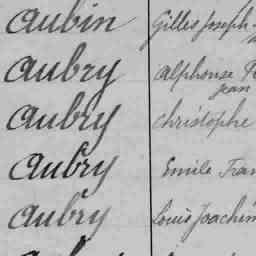 Aubin Gilles Joseph
Aubry Alphonse
Jean
Aubry Christophe
Aubry Emile Fran
Aubry Louis Joachim